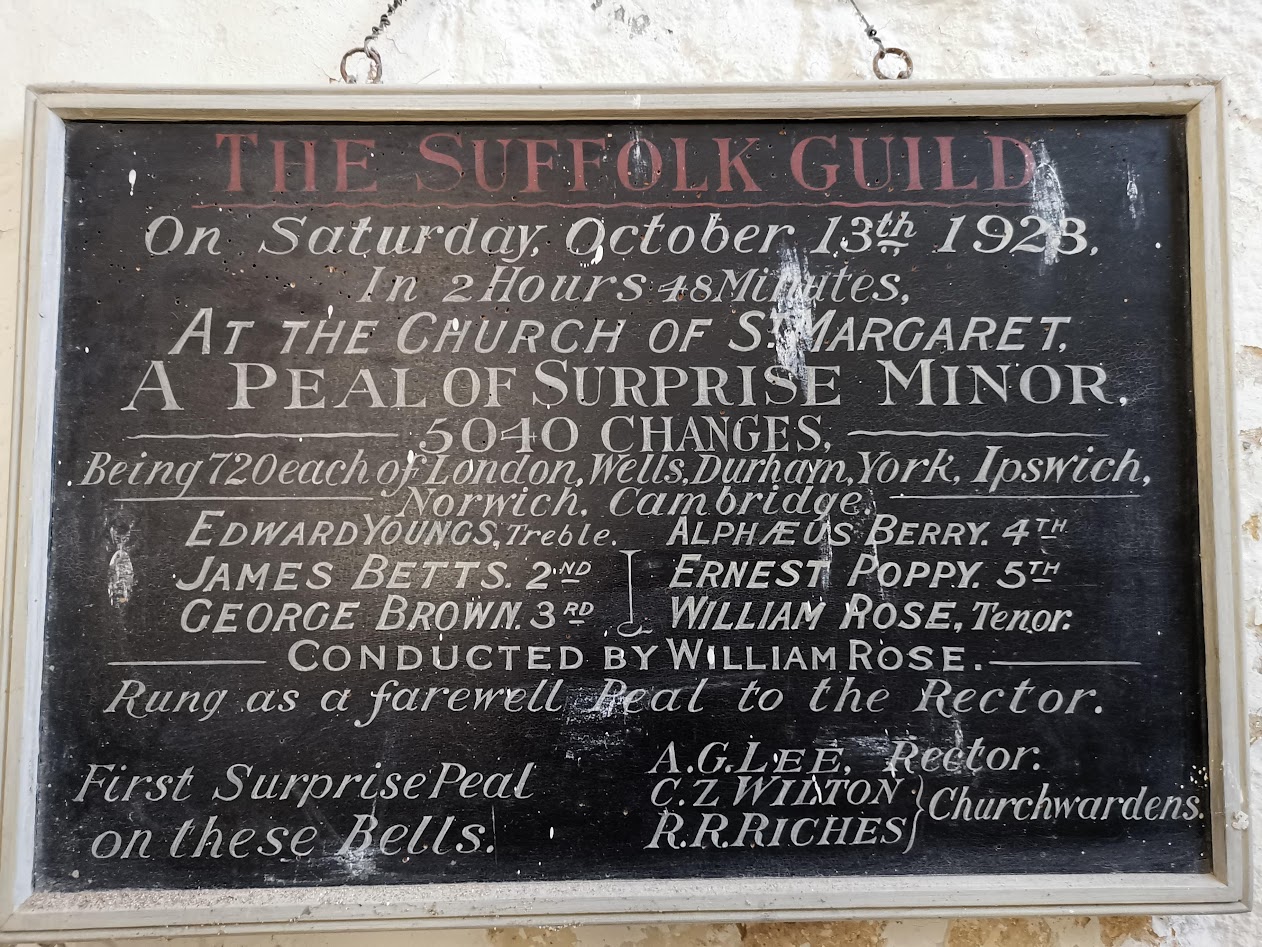 THE SUFFOLK GUILD
On Saturday, October 13th 1923,
In 2 Hours 48 Minutes,
AT THE CHURCH OF ST MARGARET,
A PEAL OF SURPRISE MINOR,
5040 CHANGES,
Being 720 each of London, Wells, Durham, York, Ipswich,
Norwich, Cambridge.
EDWARD YOUNGS, Treble. ALPHÆUS BERRY. 4TH
JAMES BETTS. 2ND ERNEST POPPY. 5TH
GEORGE BROWN. 3RD WILLIAM ROSE, Tenor.
CONDUCTED BY WILLIAM ROSE.
Rung as a farewell Peal to the Rector.
First Surprise Peal
on these Bells.
A.G. LEE, Rector.
C.Z WILTON
R.R. RICHES
Churchwardens.